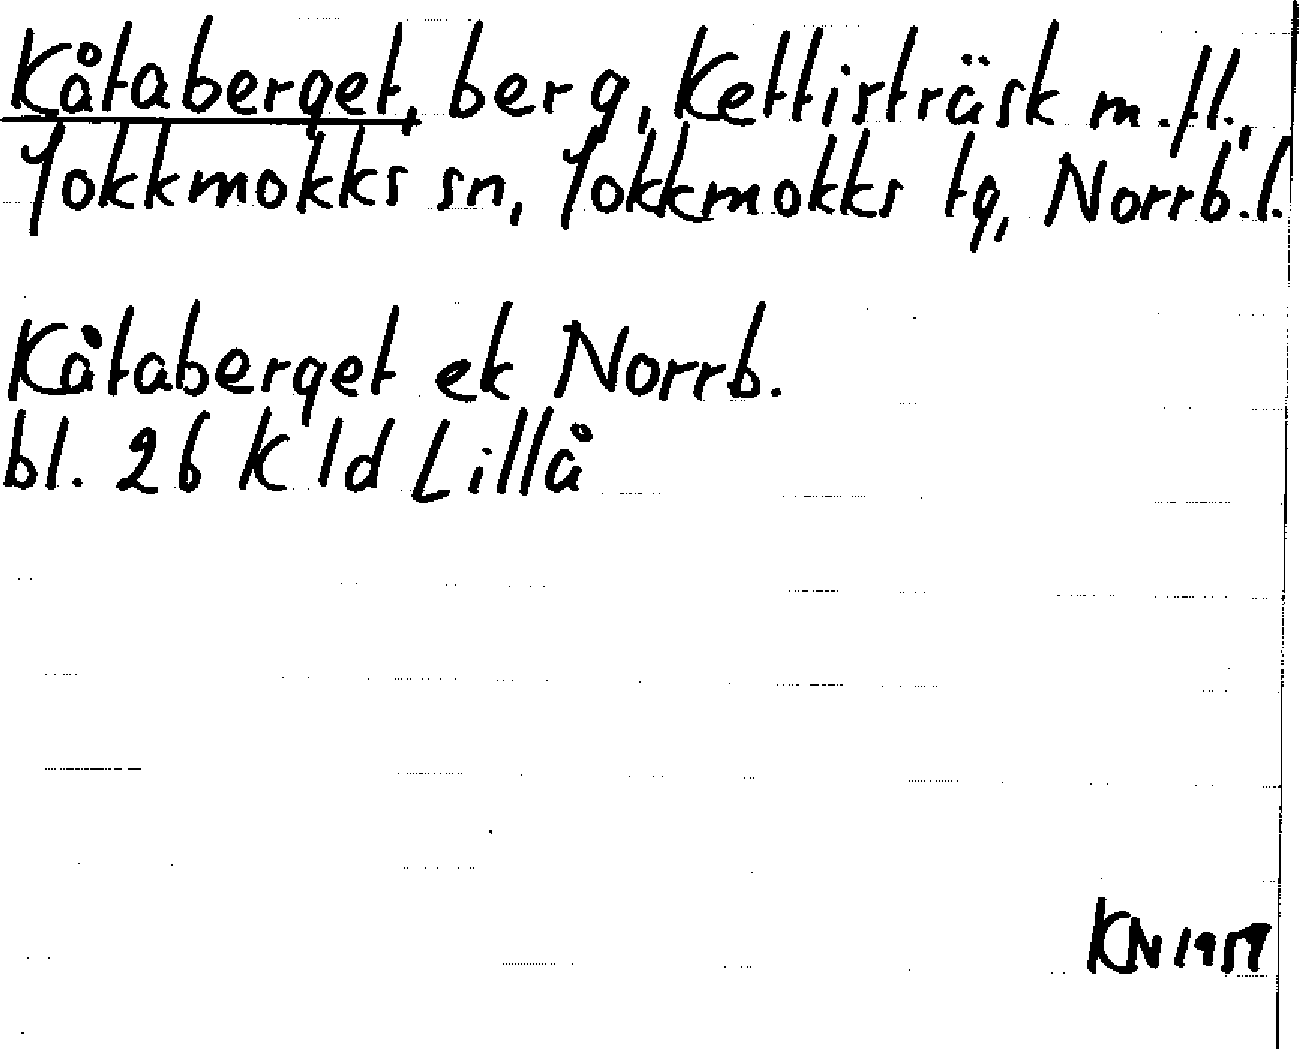 Kåtaberget, berg, Kettisträsk m.fl.,
Jokkmokks sn, Jokkmokks tg, Norrb.l.
Kåtaberget ek Norrb.
bl. 26 K Id Lillå
KN 1957